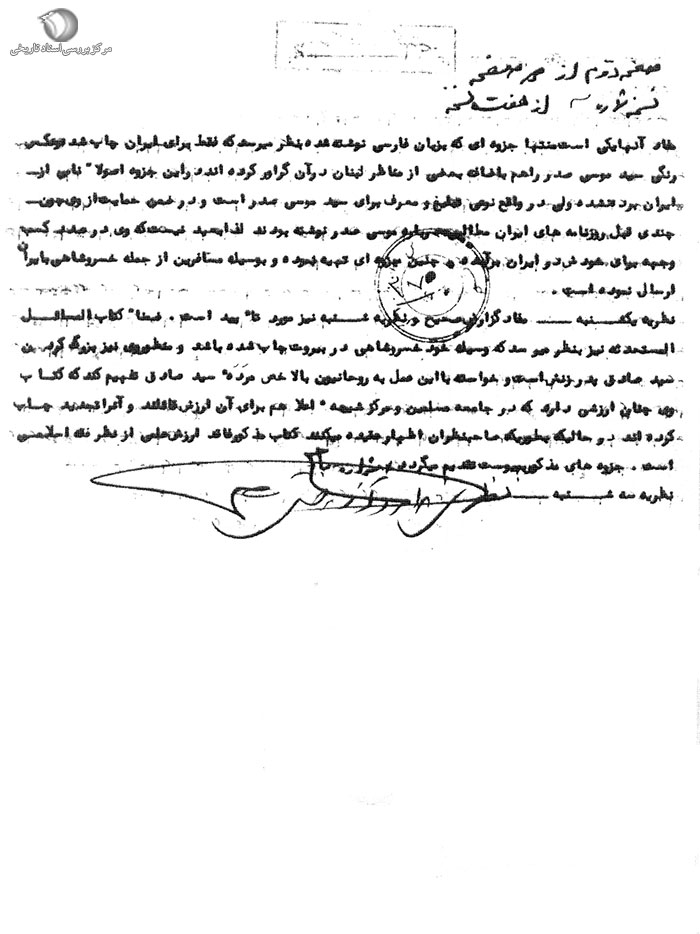 مرکز بررسی اسناد تاریخی
صفحه دوم از صفحه
نسخه شماره از هفت نسخه
مفاد آنها یکی است منتها جزوه ای که بزبان فارسی نوشته شده بنظر میرسد که فقط برای ایران چاپ شده و عکس
رنگی سید موسی صدر را هم باضافه بعضی از مناظر لبنان در آن گراور کرده اند و این جزوه اصولا" نامی از
ایران برده نشده ولی در واقع نوعی تبلیغ و معرف برای سید موسی صدر است و در ضمن حمایت از وی چون
چندی قبل روزنامه های ایران مطالبی درباره موسی صدر نوشته بودند لذا بعید نیست که وی در صدد کسب
وجهه برای خودش در ایران برآمده و چنین جزوه ای تهیه نموده و بوسیله مسافرین از جمله خسروشاهی بایران
ارسال نموده است .
نظریه یکشنبه ــ مفاد گزارش صحیح و نظریه شنبه نیز مورد تا" یید است . ضمنا" کتاب المسائل
المستحدثه نیز بنظر میرسد که وسیله خود خسروشاهی در بیروت چاپ شده باشد و منظور وی نیز بزرگ کردن
سید صادق پدر زنش است و خواسته با این عمل به روحانیون بالاخص سید صادق تفهیم کند که کتاب
وی چنان ارزشی دارد که در جامعه مسلمین و مرکز شیعه هم برای آن ارزش قائلند و آنرا تجدید چاپ
کرده اند در حالیکه بطوریکه صاحبنظران اظهار عقیده میکنند کتاب مذکور فاقد ارزش علمی از نظر فقه اسلامی
است . جزوه های مذکور بپیوست تقدیم میگردد .
نظریه سه شنبه ــ